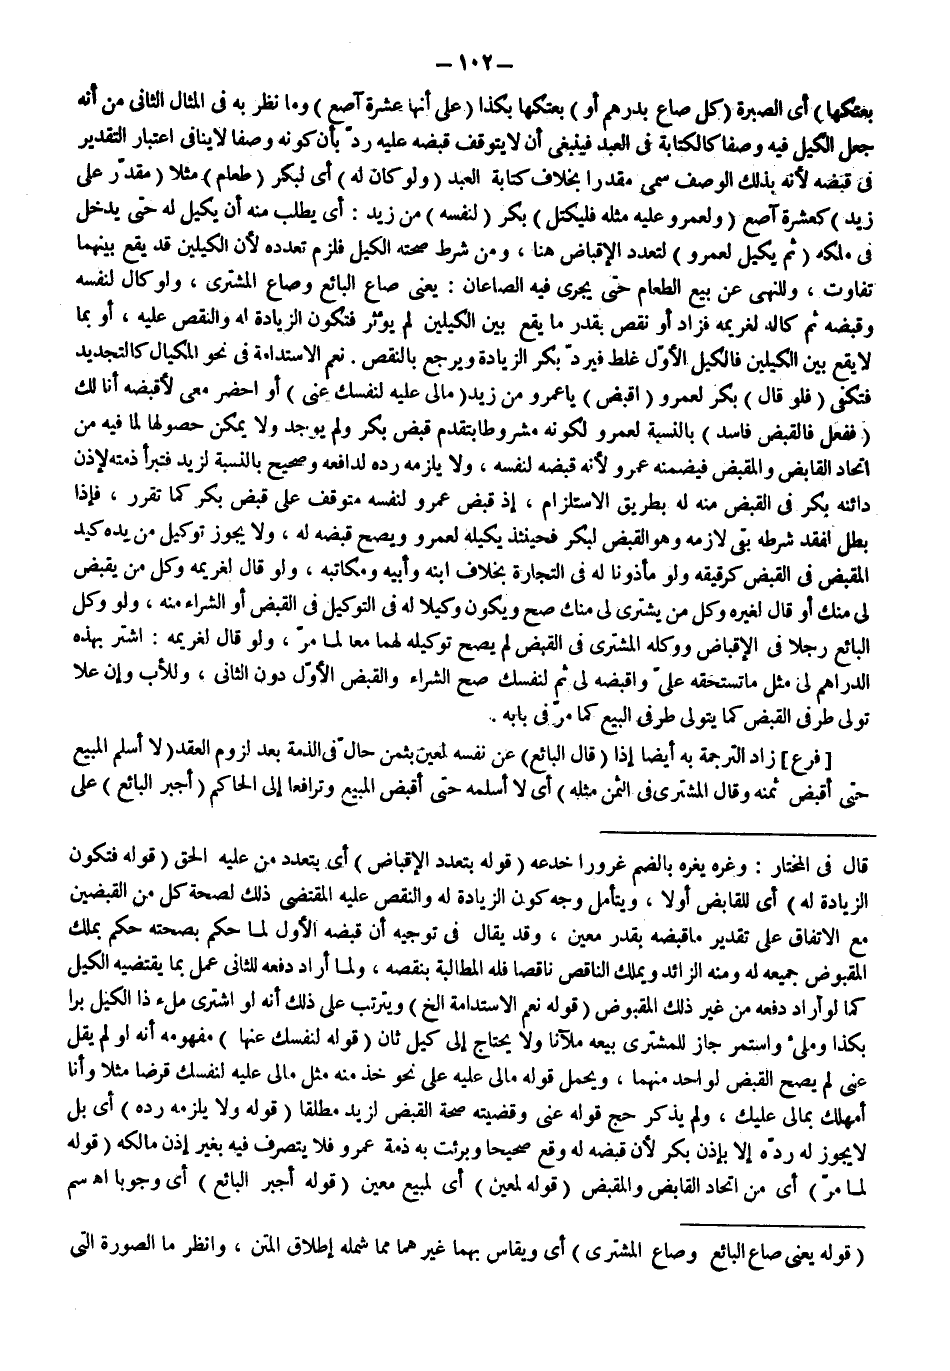 — ١٠٢ —
بعتكها ) أى الصبرة ( كل صاع بدرهم أو ) بعتكها بكذا ( على أنها عشرة آصع ) وما نظر به فى المثال الثانى من أنه
جعل الكيل فيه وصفا كالكتابة فى العبد فينبغى أن لا يتوقف قبضه عليه ردّ بأن كونه وصفا لاينافى اعتبار التقدير
فى قبضه لأنه بذلك الوصف سمى مقدرا بخلاف كتابة العبد ( ولو كان له ) أى لبكر ( طعام ) مثلا ( مقدّر على
زيد ) كعشرة آصع ( ولعمرو عليه مثله فليكتل ) بكر ( لنفسه ) من زيد : أى يطلب منه أن يكيل له حتى يدخل
فى ملكه ( ثم يكيل لعمرو ) لتعدد الإقباض هنا ، ومن شرط صحته الكيل فلزم تعدده لأن الكيلين قد يقع بينهما
تفاوت ، وللنهى عن بيع الطعام حتى يجرى فيه الصاعان : يعنى صاع البائع وصاع المشترى ، ولو كال لنفسه
وقبضه ثم كاله لغريمه فزاد أو نقص بقدر ما يقع بين الكيلين لم يؤثر فتكون الزيادة له والنقص عليه ، أو بما
لايقع بين الكيلين فالكيل الأوّل غلط فيردّ بكر الزيادة ويرجع بالنقص . نعم الاستدامة فى نحو المكيال كالتجديد
فتكفى ( فلو قال ) بكر لعمرو ( اقبض ) ياعمرو من زيد ( مالى عليه لنفسك عنى ) أو احضر معى لأقبضه أنا لك
( ففعل فالقبض فاسد ) بالنسبة لعمرو لكونه مشروطا بتقدم قبض بكر ولم يوجد ولا يمكن حصولها لما فيه من
اتحاد القابض والمقبض فيضمنه عمرو لأنه قبضه لنفسه ، ولا يلزمه رده لدافعه وصحيح بالنسبة لزيد فتبرأ ذمته لإذن
دائنه بكر فى القبض منه له بطريق الاستلزام ، إذ قبض عمرو لنفسه متوقف على قبض بكر كما تقرر ، فإذا
بطل لفقد شرطه بقى لازمه وهو القبض لبكر فحينئذ يكيله لعمرو ويصح قبضه له ، ولا يجوز توكيل من يده كيد
المقبض فى القبض كرقيقه ولو مأذونا له فى التجارة بخلاف ابنه وأبيه ومكاتبه ، ولو قال لغريمه وكل من يقبض
لى منك أو قال لغيره وكل من يشترى لى منك صح ويكون وكيلا له فى التوكيل فى القبض أو الشراء منه ، ولو وكل
البائع رجلا فى الإقباض ووكله المشترى فى القبض لم يصح توكيله لهما معا لما مرّ ، ولو قال لغريمه : اشتر بهذه
الدراهم لى مثل ماتستحقه علىّ واقبضه لى ثم لنفسك صح الشراء والقبض الأوّل دون الثانى ، وللأب وإن علا
تولى طرفى القبض كما يتولى طرفى البيع كما مرّ فى بابه .
[ فرع ] زاد الترجمة به أيضا إذا ( قال البائع ) عن نفسه لمعين بثمن حالّ فى الذمة بعد لزوم العقد ( لا أسلم المبيع
حتى أقبض ثمنه وقال المشترى فى الثمن مثله ) أى لا أسلمه حتى أقبض المبيع وترافعا إلى الحاكم ( أجبر البائع ) على
قال فى المختار : وغره يغره بالضم غرورا خدعه ( قوله بتعدد الإقباض ) أى بتعدد من عليه الحق ( قوله فتكون
الزيادة له ) أى للقابض أولا ، ويتأمل وجه كون الزيادة له والنقص عليه المقتضى ذلك لصحة كل من القبضين
مع الاتفاق على تقدير ماقبضه بقدر معين ، وقد يقال فى توجيه أن قبضه الأول لما حكم بصحته حكم بملك
المقبوض جميعه له ومنه الزائد ويملك الناقص ناقصا فله المطالبة بنقصه ، ولما أراد دفعه للثانى عمل بما يقتضيه الكيل
كما لو أراد دفعه من غير ذلك المقبوض ( قوله نعم الاستدامة الخ ) ويترتب على ذلك أنه لو اشترى ملء ذا الكيل برا
بكذا وملئ واستمر جاز للمشترى بيعه ملآنا ولا يحتاج إلى كيل ثان ( قوله لنفسك عنها ) مفهومه أنه لو لم يقل
عنى لم يصح القبض لواحد منهما ، ويحمل قوله مالى عليه على نحو خذ منه مثل مالى عليه لنفسك قرضا مثلا وأنا
أمهلك بمالى عليك ، ولم يذكر حج قوله عنى وقضيته صحة القبض لزيد مطلقا ( قوله ولا يلزمه رده ) أى بل
لايجوز له ردّه إلا بإذن بكر لأن قبضه له وقع صحيحا وبرئت به ذمة عمرو فلا يتصرف فيه بغير إذن مالكه ( قوله
لما مرّ ) أى من اتحاد القابض والمقبض ( قوله لمعين ) أى لمبيع معين ( قوله أجبر البائع ) أى وجوبا اه سم
( قوله يعنى صاع البائع وصاع المشترى ) أى ويقاس بهما غيرهما مما شمله إطلاق المتن ، وانظر ما الصورة التى